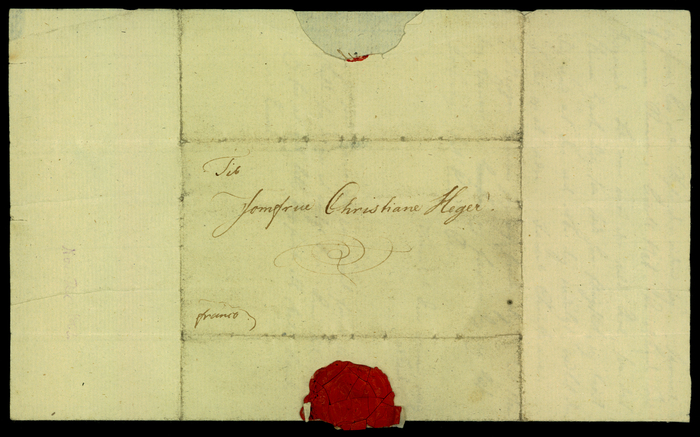 Til
Jomfrue Christiane Heger.
franco